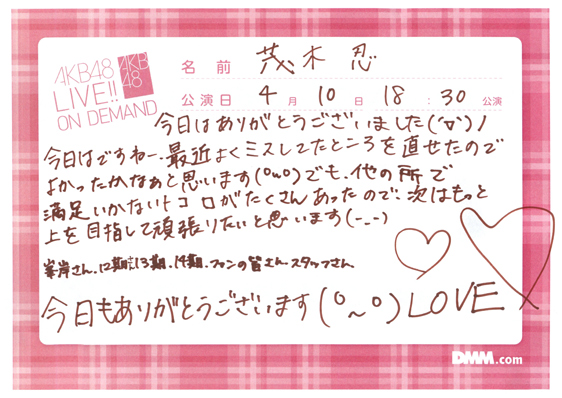 AKB48
LIVE!!
ON DEMAND
AKB
48
名前 茂木 忍
公演日 4月10日 18:30公演
今日はありがとうございました(´∇`)ノ
今日はですねー、最近よくミスしてたところを直せたので
よかったかなぁと思います(°ω°)でも、他の所で
満足いかないトコロがたくさんあったので、次はもっと
上を目指して頑張りたいと思います(-_-)
峯岸さん、12期、13期、14期、ファンの皆さん、スタッフさん
今日もありがとうございます(°~°)LOVE
DMM.com